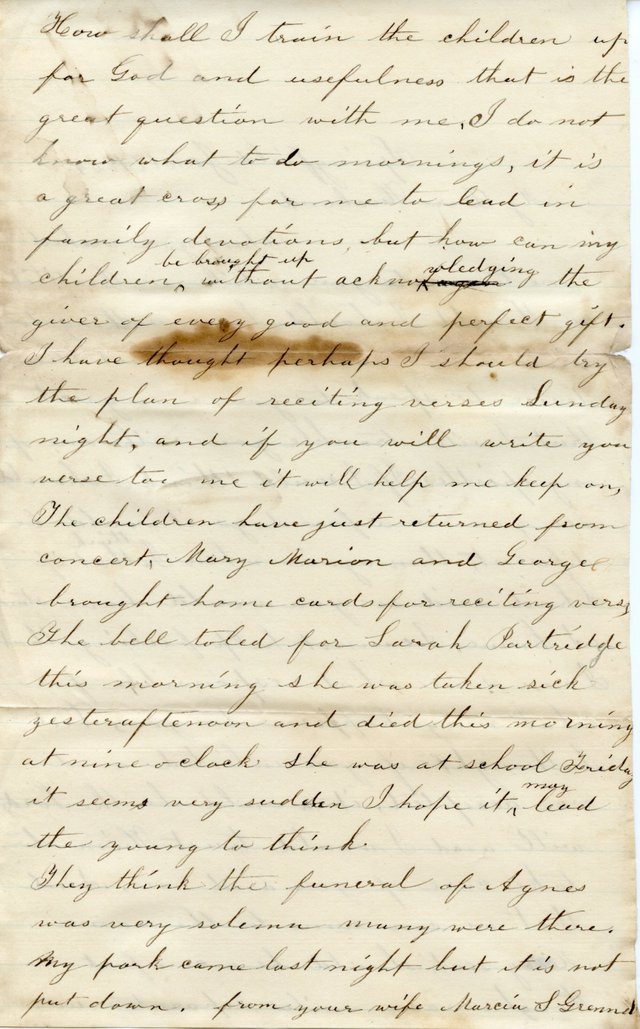 How shall I train the children up
for God and usefulness that is the
great question with me, I do not
know what to do mornings, it is
a great cross for me to lead in
family devotions, but how can my
children be brought up without acknowledging the
giver of every good and perfect gift.
I have thought perhaps I should try
the plan of reciting verses Sunday
night, and if you will write your
verse too me it will help me keep on,
The children have just returned from
concert, Mary Marion and George
brought home cards for reciting verses
The bell toled for Sarah Partridge
this morning she was taken sick
yesteraftenoon and died this morning
at nine oclock she was at school Friday
it seems very sudden I hope it may lead
the young to think.
They think the funeral of Agnes
was very solemn many were there.
My pork came last night but it is not
put down. from your wife Marcia S